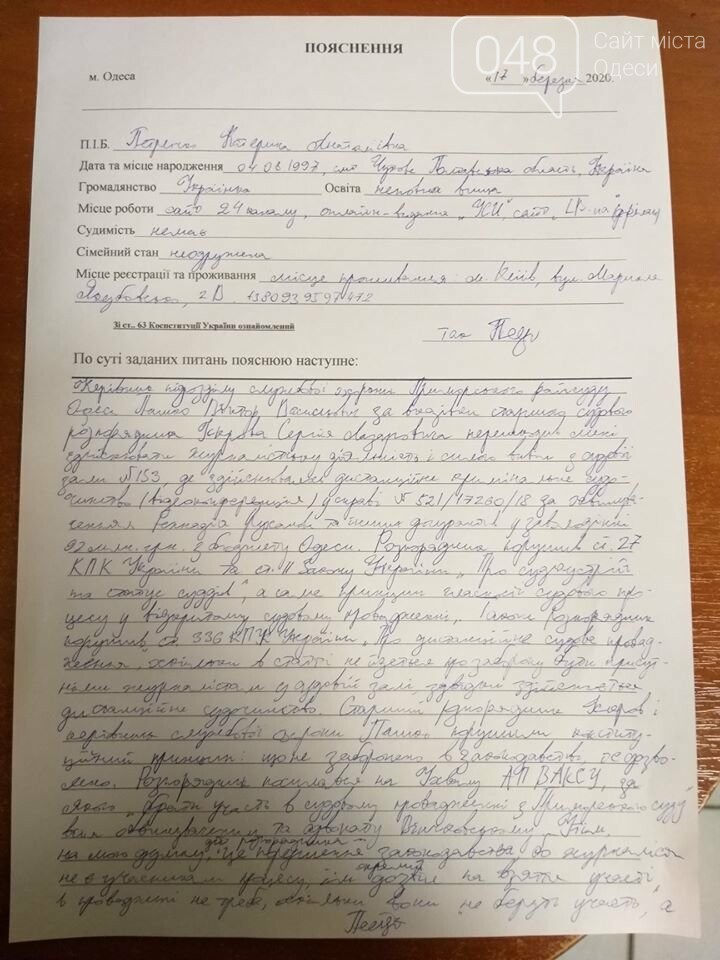 048
Сайт міста
Одеси
ПОЯСНЕННЯ
м. Одеса «17» березня 2020.
П.І.Б. Петренко Катерина Анатоліївна
Дата та місце народження 04.08.1997, смт Чутове Полтавська область, Україна
Громадянство Українка Освіта неповна вища
Місце роботи сайт 24 каналу, онлайн-видання
Судимість немає
Сімейний стан неодружена
Місце реєстрації та проживання місце проживання: м. Київ, вул. Маршала
2В
Зі ст.. 63 Косниституції України ознайомлений
так
По суті заданих питань пояснюю наступне:
Керівник підрозділу службової охорони Приморського райсуду
Одеси Віктор за вказівки старшого судового
розпорядника Сергія перешкодив мені
здійснювати журналістську діяльність і силою вивів з судової
зали №153, де здійснювали дистанційне кримінальне судо-
чинство (відеоконференція) у справі № 521/17260/18 за
Геннадія Труханова та інших у заволодінні
92 млн. грн. з бюджету Одеси. Розпорядник порушив ст. 27
КПК України та ст. 11 Закону України „Про судоустрій
та статус суддів", а саме принцип гласності судового про-
цесу у відкритому судовому провадженні. Також розпорядник
порушив ст. 336 КПК України „Про дистанційне судове провад-
ження", оскільки в статті не йдеться про заборону бути присут-
німи журналістам у судовій залі, звідки здійснюється
дистанційне судочинство. Старший розпорядник і
керівник службової охорони порушили конститу-
ційний принцип: що не заборонено законодавством, те дозво-
лено. Розпорядник посилався на Ухвалу АП ВАКСУ, за
якою „брати участь в судовому провадженні з Приморського суду
та адвокату
на мою думку, це порушення законодавства, бо журналісти
не є учасниками процесу, їм окремий дозвіл на взяття участі
в провадженні не треба, оскільки вони не беруть участь, а